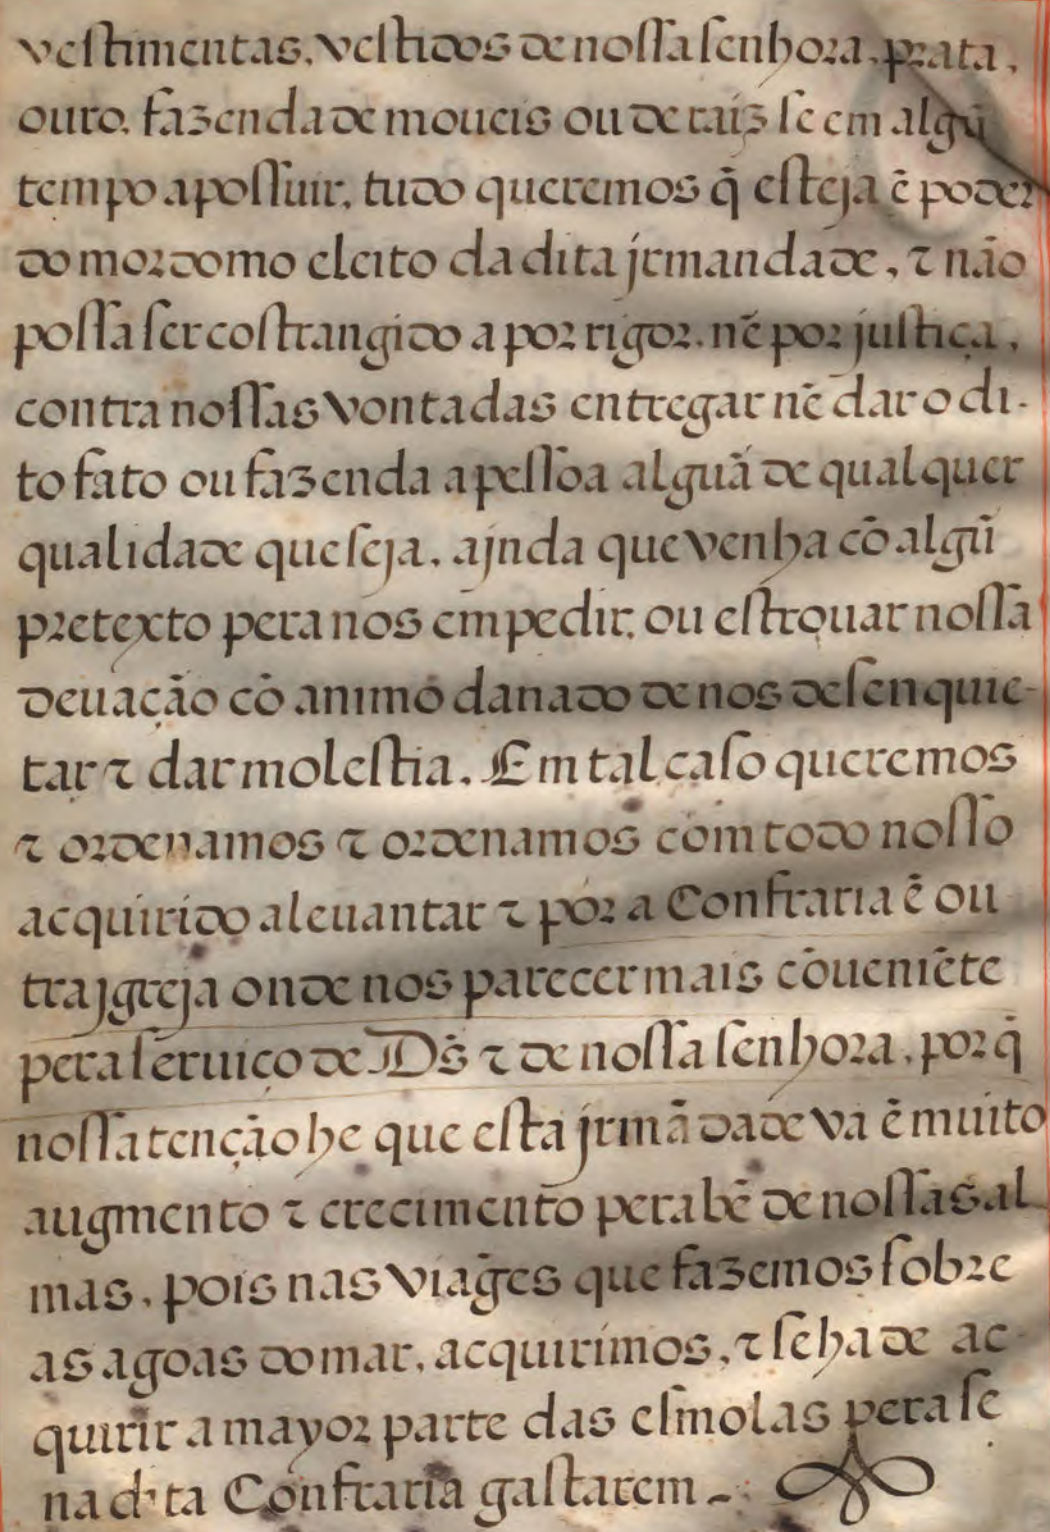 vestimentas, vestidos de nossa senhora, prata,
ouro, fazenda de moueis ou de raiz se em algũ
tempo a possuir, tudo queremos q̃ esteja ẽ poder
do mordomo eleito da dita jrmandade, ⁊ não
possa ser costrangido a por rigor, nẽ por justiça,
contra nossas vontadas entregar nẽ dar o di-
to fato ou fazenda a pessoa alguã de qualquer
qualidade que seja, ajnda que venha cõ algũ
pretexto pera nos empedir, ou estrouar nossa
deuação cõ animo danado de nos desenquie-
tar ⁊ dar molestia. Em tal caso queremos
⁊ ordenamos ⁊ ordenamos com todo nosso
acquirido aleuantar ⁊ pór a Confraria ẽ ou
tra jgreja onde nos parecer mais cõueniẽte
pera seruiço de Ds̃ ⁊ de nossa senhora, por q̃
nossa tenção he que esta jrmãdade va ẽ muito
augmento ⁊ crecimento pera bẽ de nossas al
mas, pois nas viag̃es que fazemos sobre
as agoas do mar, acquirimos, ⁊ se ha de ac-
quirir a mayor parte das esmolas pera se
na dita Confraria gastarem